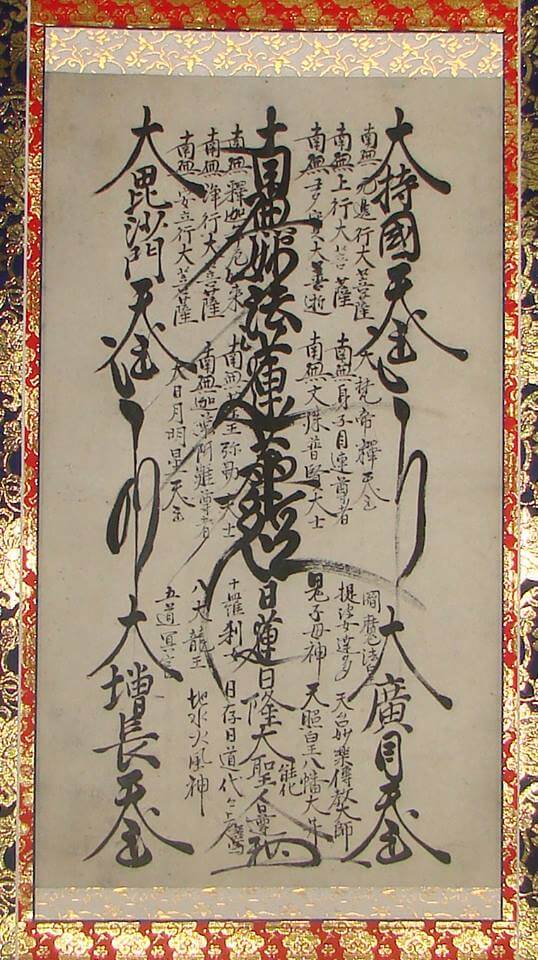 大持國天王
南無无邊行大菩薩
南無上行大菩薩
南無多寶大善逝
南無妙法蓮華經
南無釋迦牟尼如来
南無淨行大菩薩
南無安立行大菩薩
大毘沙門天王
大梵帝釋天王
南無身子目連尊者
南無文殊普賢大士
南無藥王弥勒大士
南無迦葉阿難尊者
大日月明星天子
大廣目天王
閻魔法王
提婆達多 天台妙樂傳教大師
鬼子母神 天照皇八幡大
日蓮日隆大聖人
能化
十羅刹女 日存日道代々
八大龍王 地水火風神
五道冥官
大增長天王